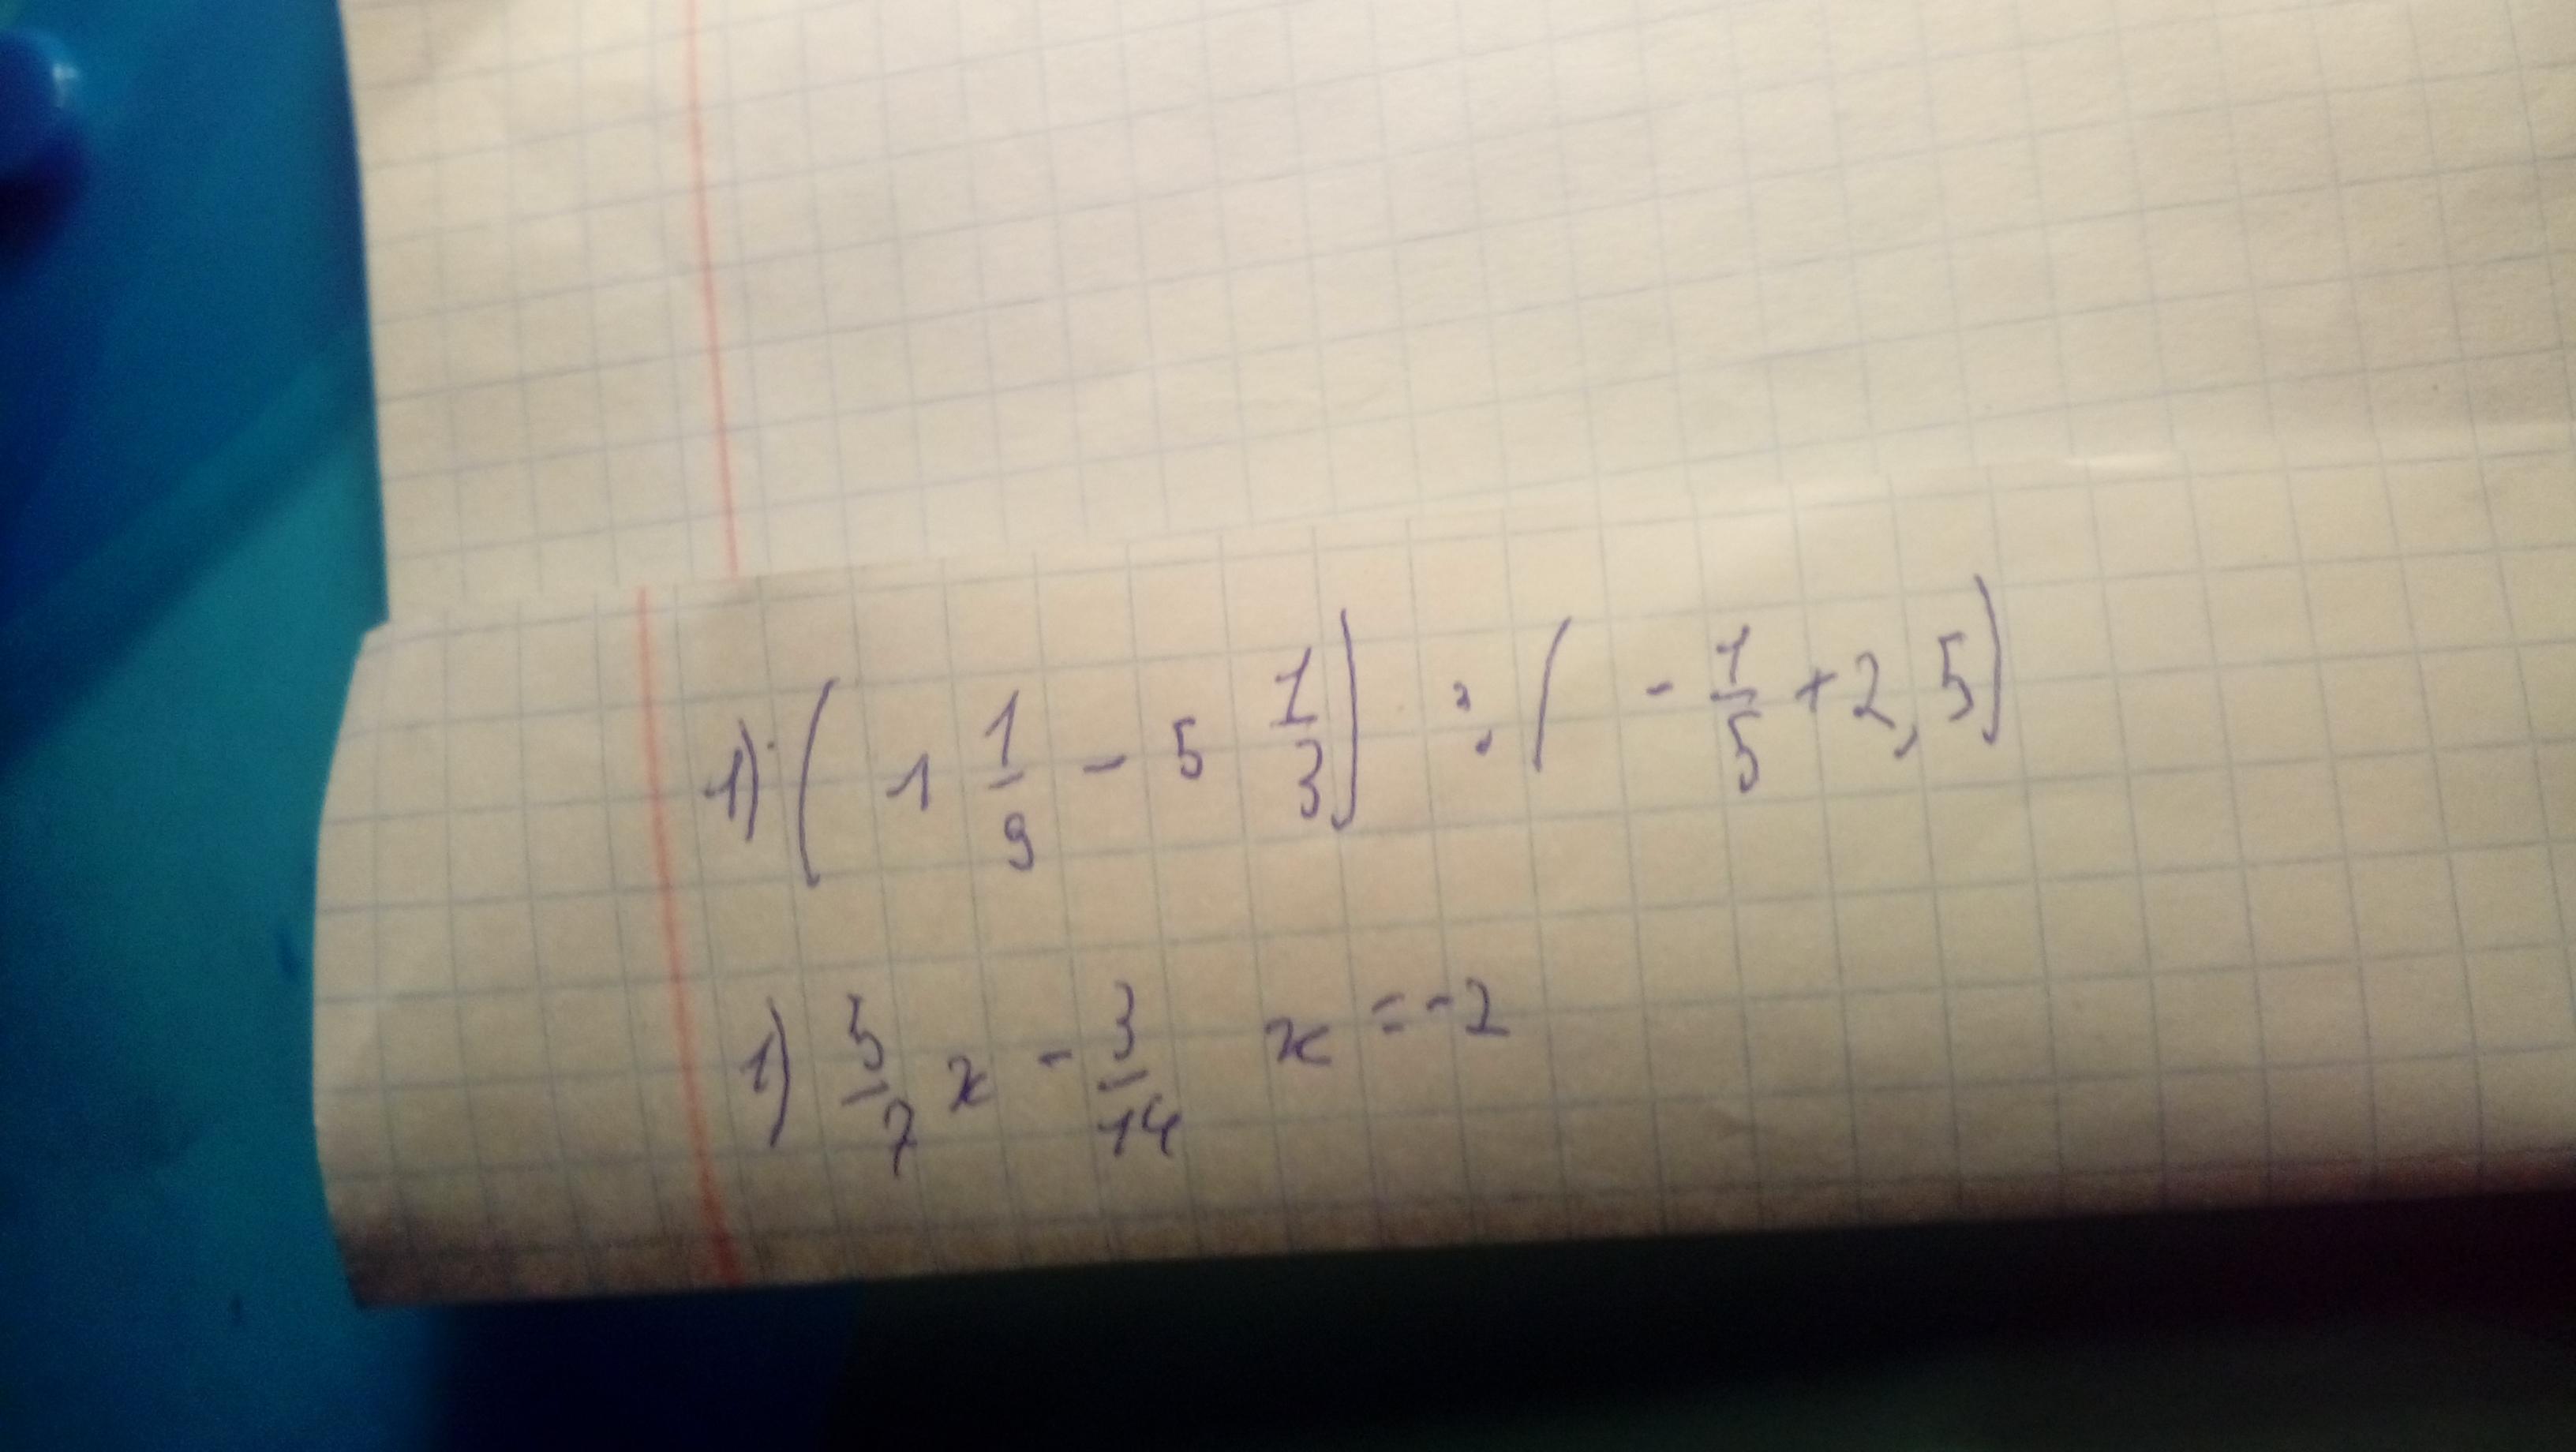 1) (1 1/9 - 5 1/3) : (- 1/5 + 2,5)
1) 5/7 x - 3/14 x = -2